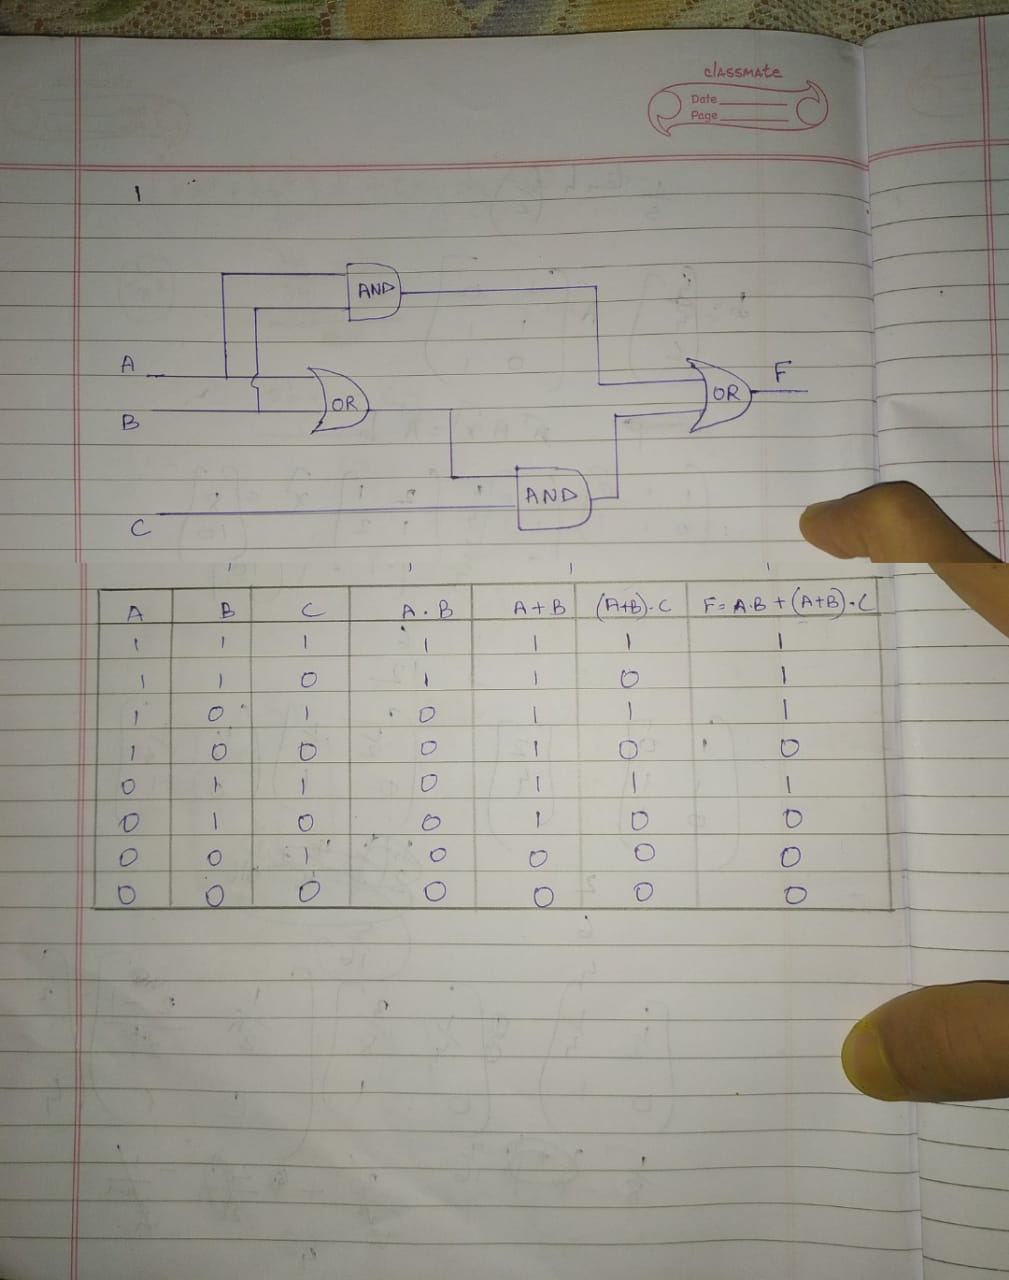 classmate
Date
Page
1
AND
A
OR
B
OR
F
AND
C
A B C A . B A + B (A+B).C F = A.B + (A+B).C
1 1 1 1 1 1 1
1 1 0 1 1 0 1
1 0 1 0 1 1 1
1 0 0 0 1 0 0
0 1 1 0 1 1 1
0 1 0 0 1 0 0
0 0 1 0 0 0 0
0 0 0 0 0 0 0